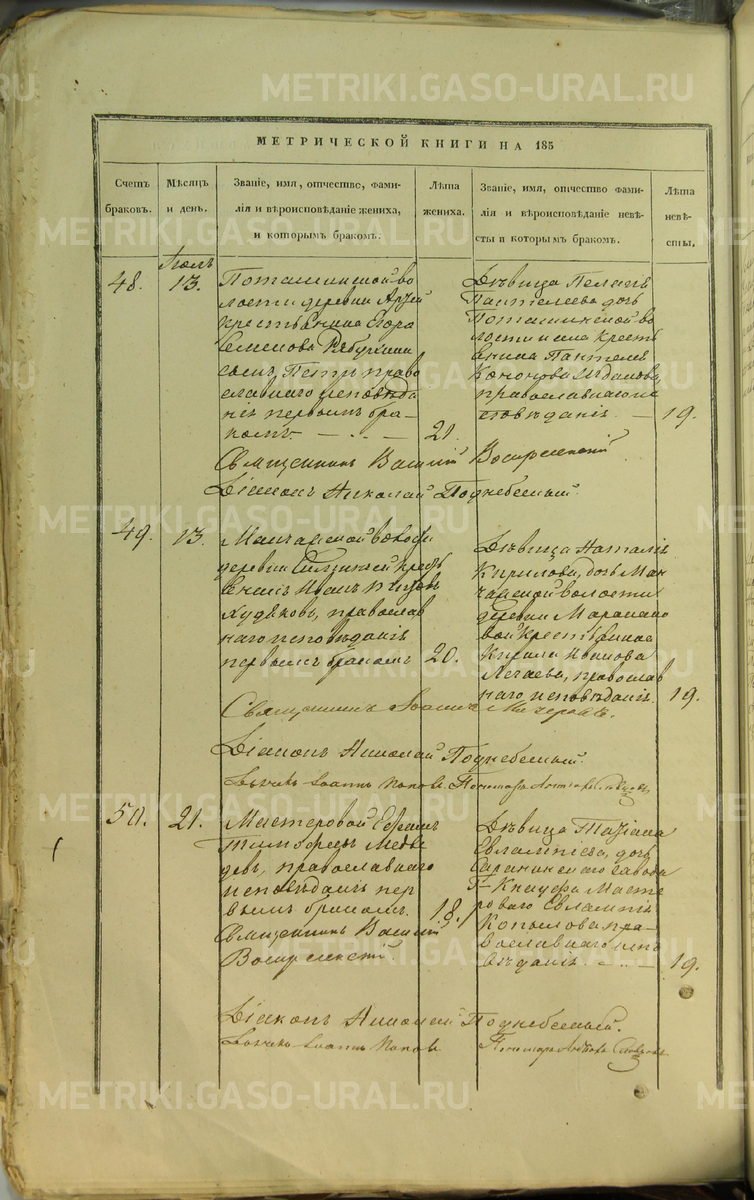 МЕТРИЧЕСКОЙ КНИГИ НА 185
Счетъ браковъ.
Мѣсяцъ и день.
Званіе, имя, отчество, фами-
лія и вѣроисповѣданіе жениха,
и которымъ бракомъ.
Лѣта жениха.
Званіе, имя, отчество фами-
лія и вѣроисповѣданіе невѣ-
сты и которымъ бракомъ.
Лѣта невѣ-
сты,
48.
13.
Поташинской во
лости деревни
крестьянина Егора
Семенова
сынъ, Петръ право
славнаго исповѣда
нія первымъ бра-
комъ
21.
Дѣвица Пелагія
Пантелеева дочь
Поташинской во
лости села кресть
янина Пантеле
Кононова
православнаго ис
повѣданія.
19.
Священникъ Василій Воскресенскій
Діаконъ Николай Поднебесный
49.
13.
Манчажской волости
деревни крестъ
янинъ Иванъ
Худяковъ, православ
наго исповѣданія
первымъ бракомъ
20.
Дѣвица Наталія
Кирилова, дочь Ман
чажской волости
деревни
вой крестьянина
Кирила Иванова
православ
наго исповѣданія.
19.
Священникъ Іоаннъ
Діаконъ Николай Поднебесный.
Дьячекъ Іоаннъ Поповъ. Пономарь
50.
21.
Мастеровой Ефремъ
Тимофеевъ Медвѣ
девъ, православнаго
исповѣданія пер
вымъ бракомъ.
18.
Дѣвица Татіана
Евлампіева, дочь
Саранинскаго завода
Г. Кнауфа Масте
роваго Евлампія
Копылова пра-
вославнаго испо
вѣданія.
19.
Священникъ Василій
Воскресенскій
Діаконъ Николай Поднебесный.
Дьячекъ Іоаннъ Поповъ
Пономарь
METRIKI.GASO-URAL.RU